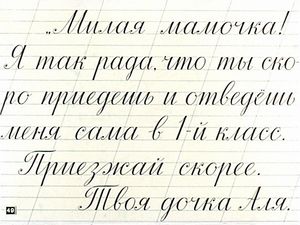 „Милая мамочка!
Я так рада, что ты ско-
ро приедешь и отведёшь
меня сама в 1-й класс.
Приезжай скорее.
Твоя дочка Аля.
49